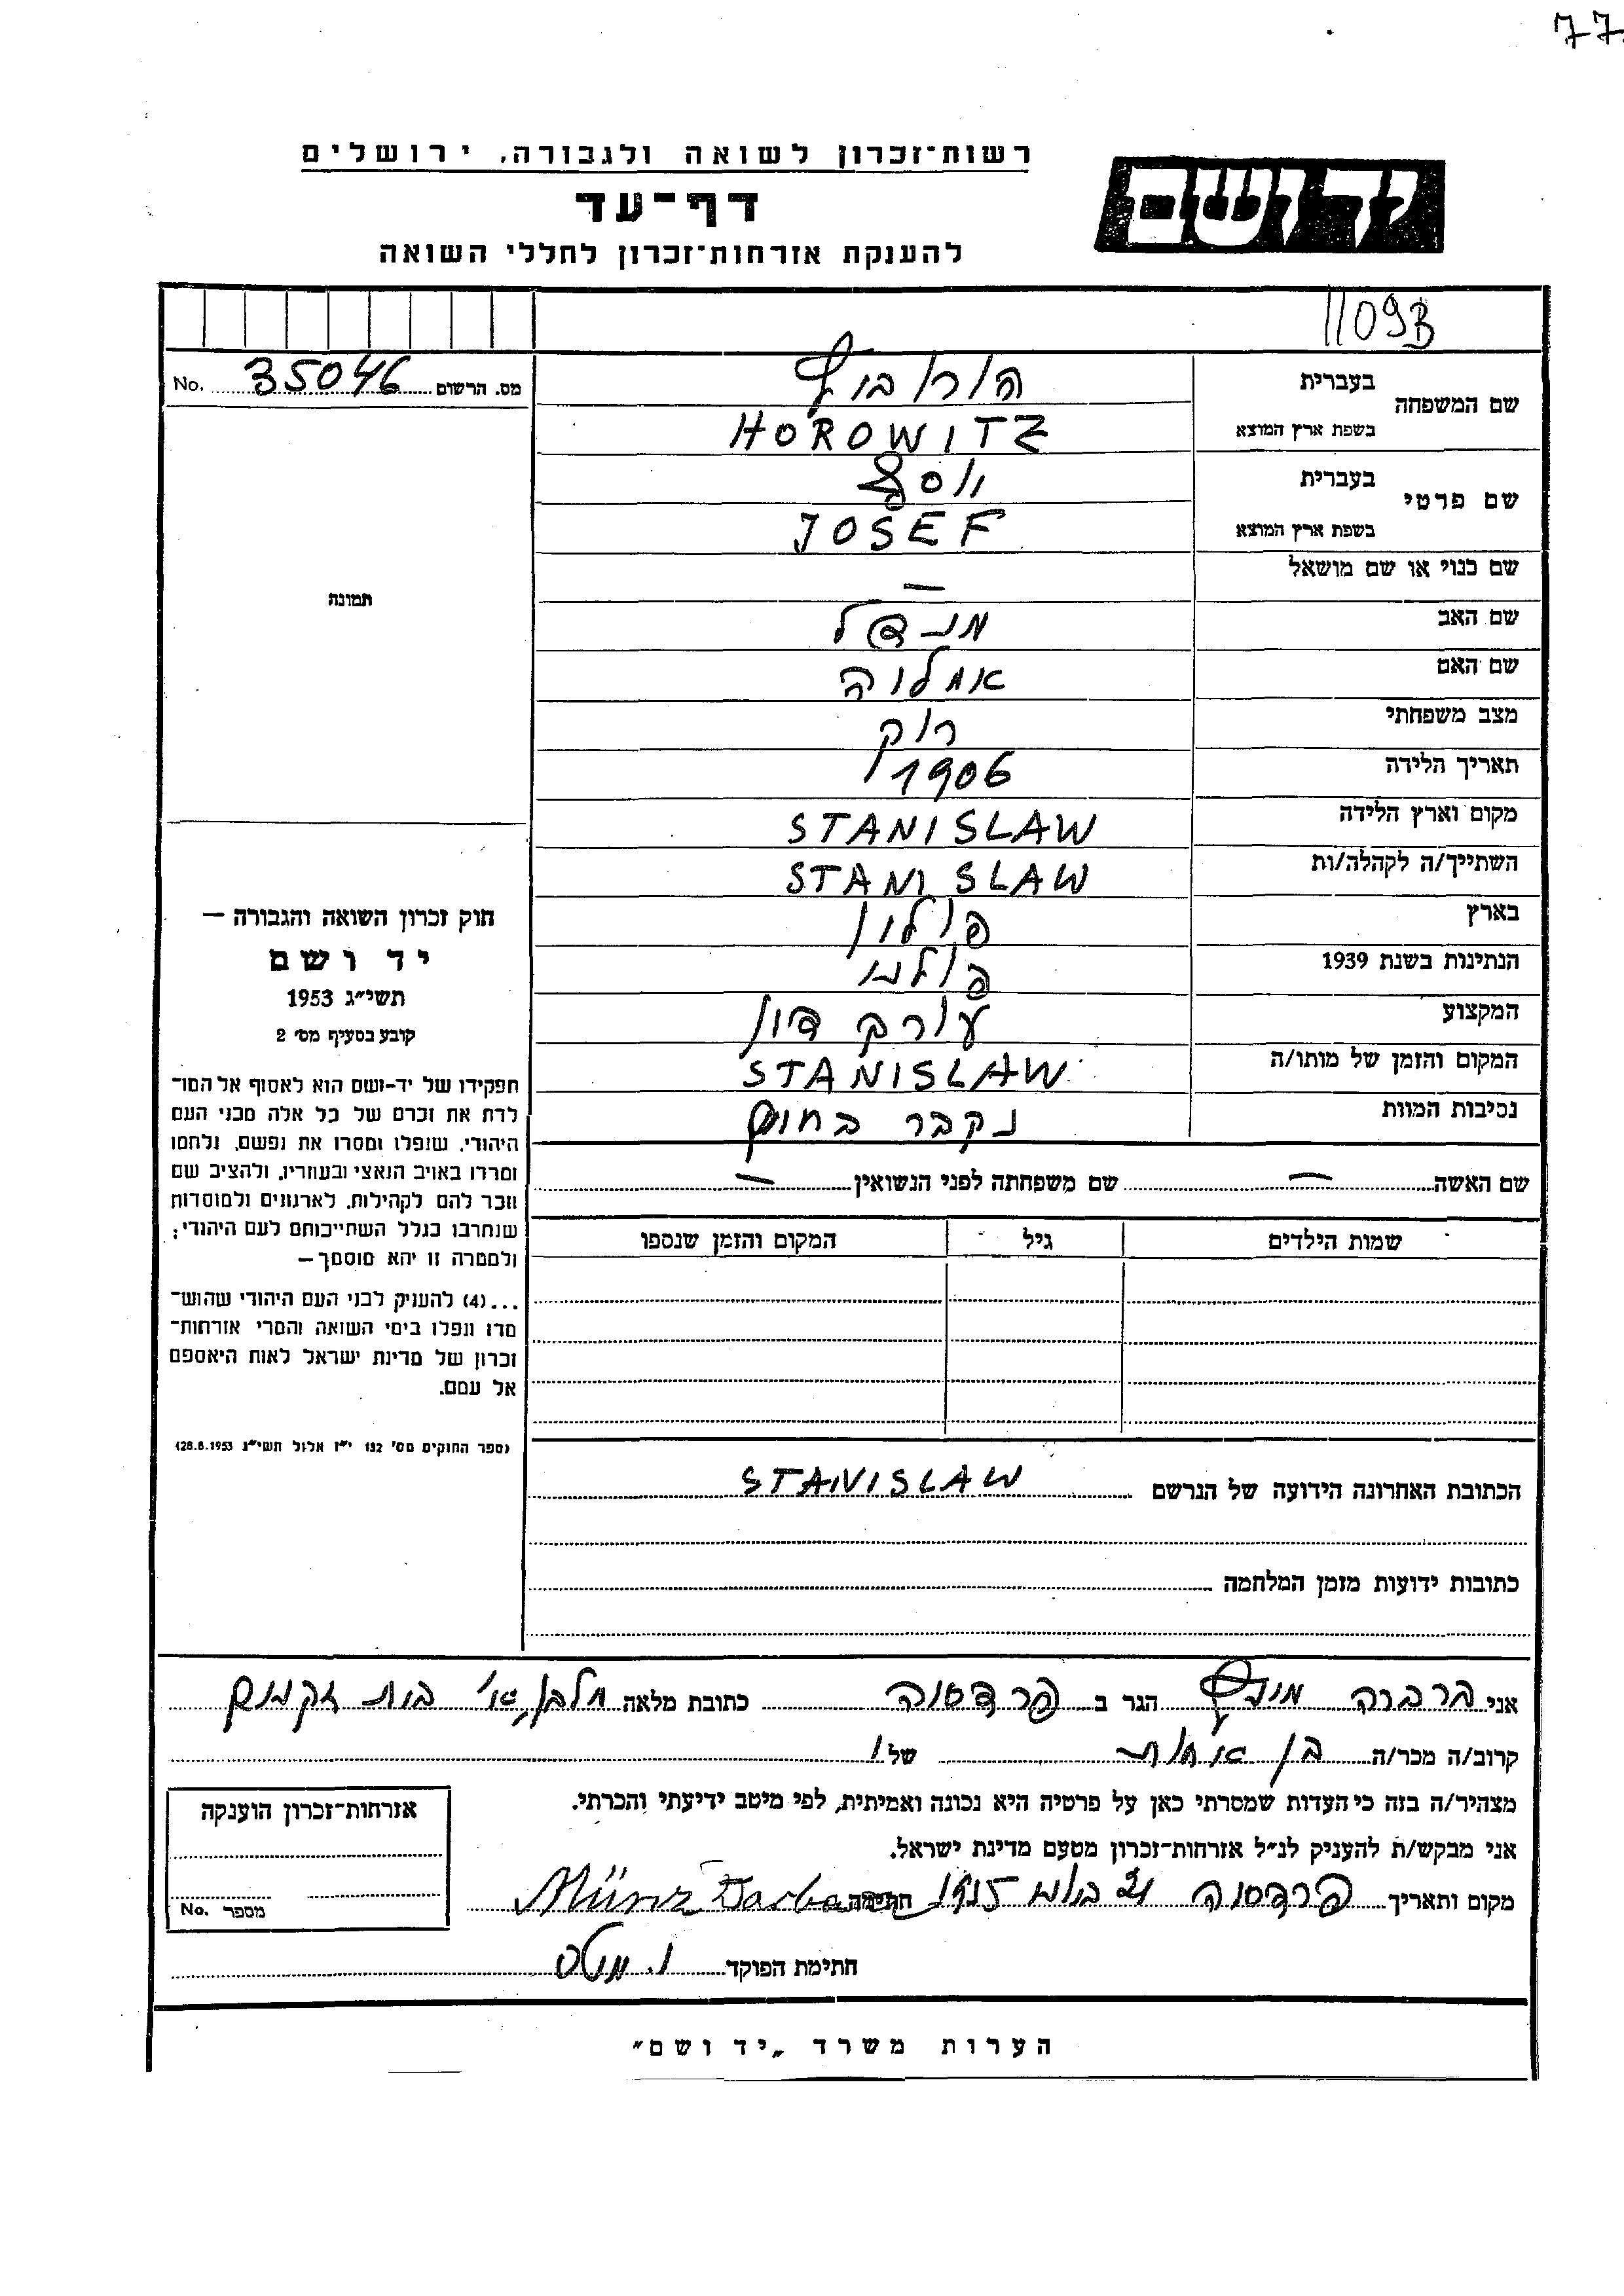 77
רשות־זכרון לשואה ולגבורה, ירושלים
יד ושם
דף־עד
להענקת אזרחות־זכרון לחללי השואה
1109B
מס. הרשום 35046 No.
שם המשפחה
בעברית הורוביץ
בשפת ארץ המוצא HOROWITZ
שם פרטי
בעברית יוסף
בשפת ארץ המוצא JOSEF
שם כנוי או שם מושאל —
שם האב מנדל
שם האם
מצב משפחתי רוק
תאריך הלידה 1906
מקום וארץ הלידה STANISLAW
השתייך/ה לקהלה/ות STANISLAW
בארץ פולין
הנתינות בשנת 1939 פולני
המקצוע עורך דין
המקום והזמן של מותו/ה STANISLAW
נסיבות המוות נקבר בחוץ
תמונה
חוק זכרון השואה והגבורה —
יד ושם
תשי״ג 1953
קובע בסעיף מס׳ 2
תפקידו של יד-ושם הוא לאסוף אל המו־
לדת את זכרם של כל אלה מבני העם
היהודי, שנפלו ומסרו את נפשם, נלחמו
ומרדו באויב הנאצי ובעוזריו, ולהציב שם
וזכר להם לקהילות, לארגונים ולמוסדות
שנחרבו בגלל השתייכותם לעם היהודי;
ולמטרה זו יהא מוסמך —
...(4) להעניק לבני העם היהודי שהוש־
מדו ונפלו בימי השואה והמרי אזרחות־
זכרון של מדינת ישראל לאות היאספם
אל עמם.
(ספר החוקים מס׳ 132 י״ז אלול תשי״ג 28.8.1953)
שם האשה — שם משפחתה לפני הנשואין —
שמות הילדים גיל המקום והזמן שנספו
הכתובת האחרונה הידועה של הנרשם STANISLAW
כתובות ידועות מזמן המלחמה
אני ברברה מינץ הגר ב פרדסיה כתובת מלאה
קרוב/ה מכר/ה בן אחות של
מצהיר/ה בזה כי העדות שמסרתי כאן על פרטיה היא נכונה ואמיתית, לפי מיטב ידיעתי והכרתי.
אני מבקש/ת להעניק לנ״ל אזרחות־זכרון מטעם מדינת ישראל.
מקום ותאריך פרדסיה חתימה Münz Barbara
חתימת הפוקד
אזרחות־זכרון הוענקה
מספר No.
הערות משרד „יד ושם״